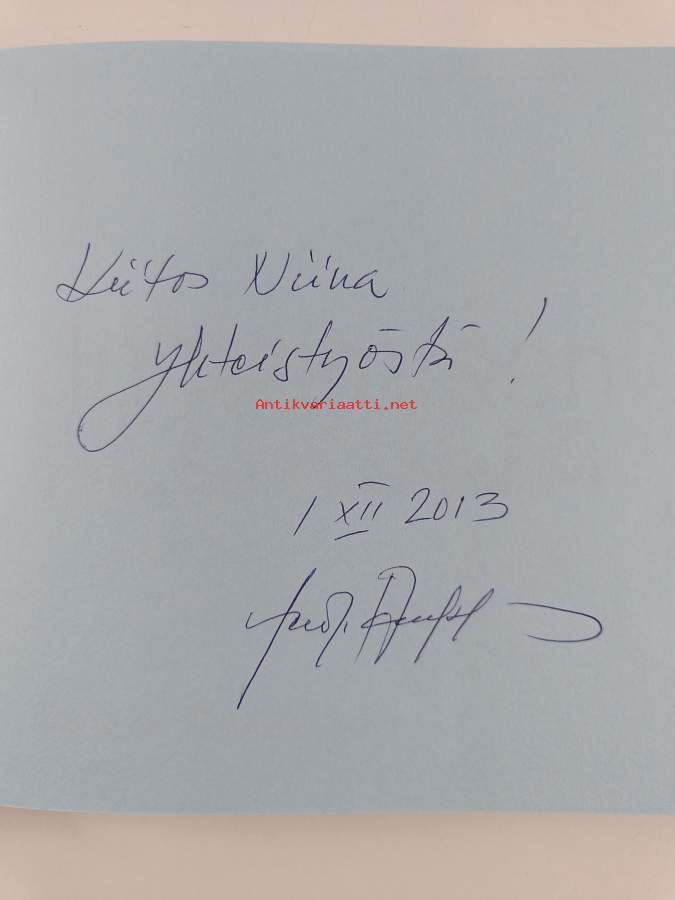 Kiitos Niina
yhteistyöstä!
Antikvariaatti.net
1 XII 2013